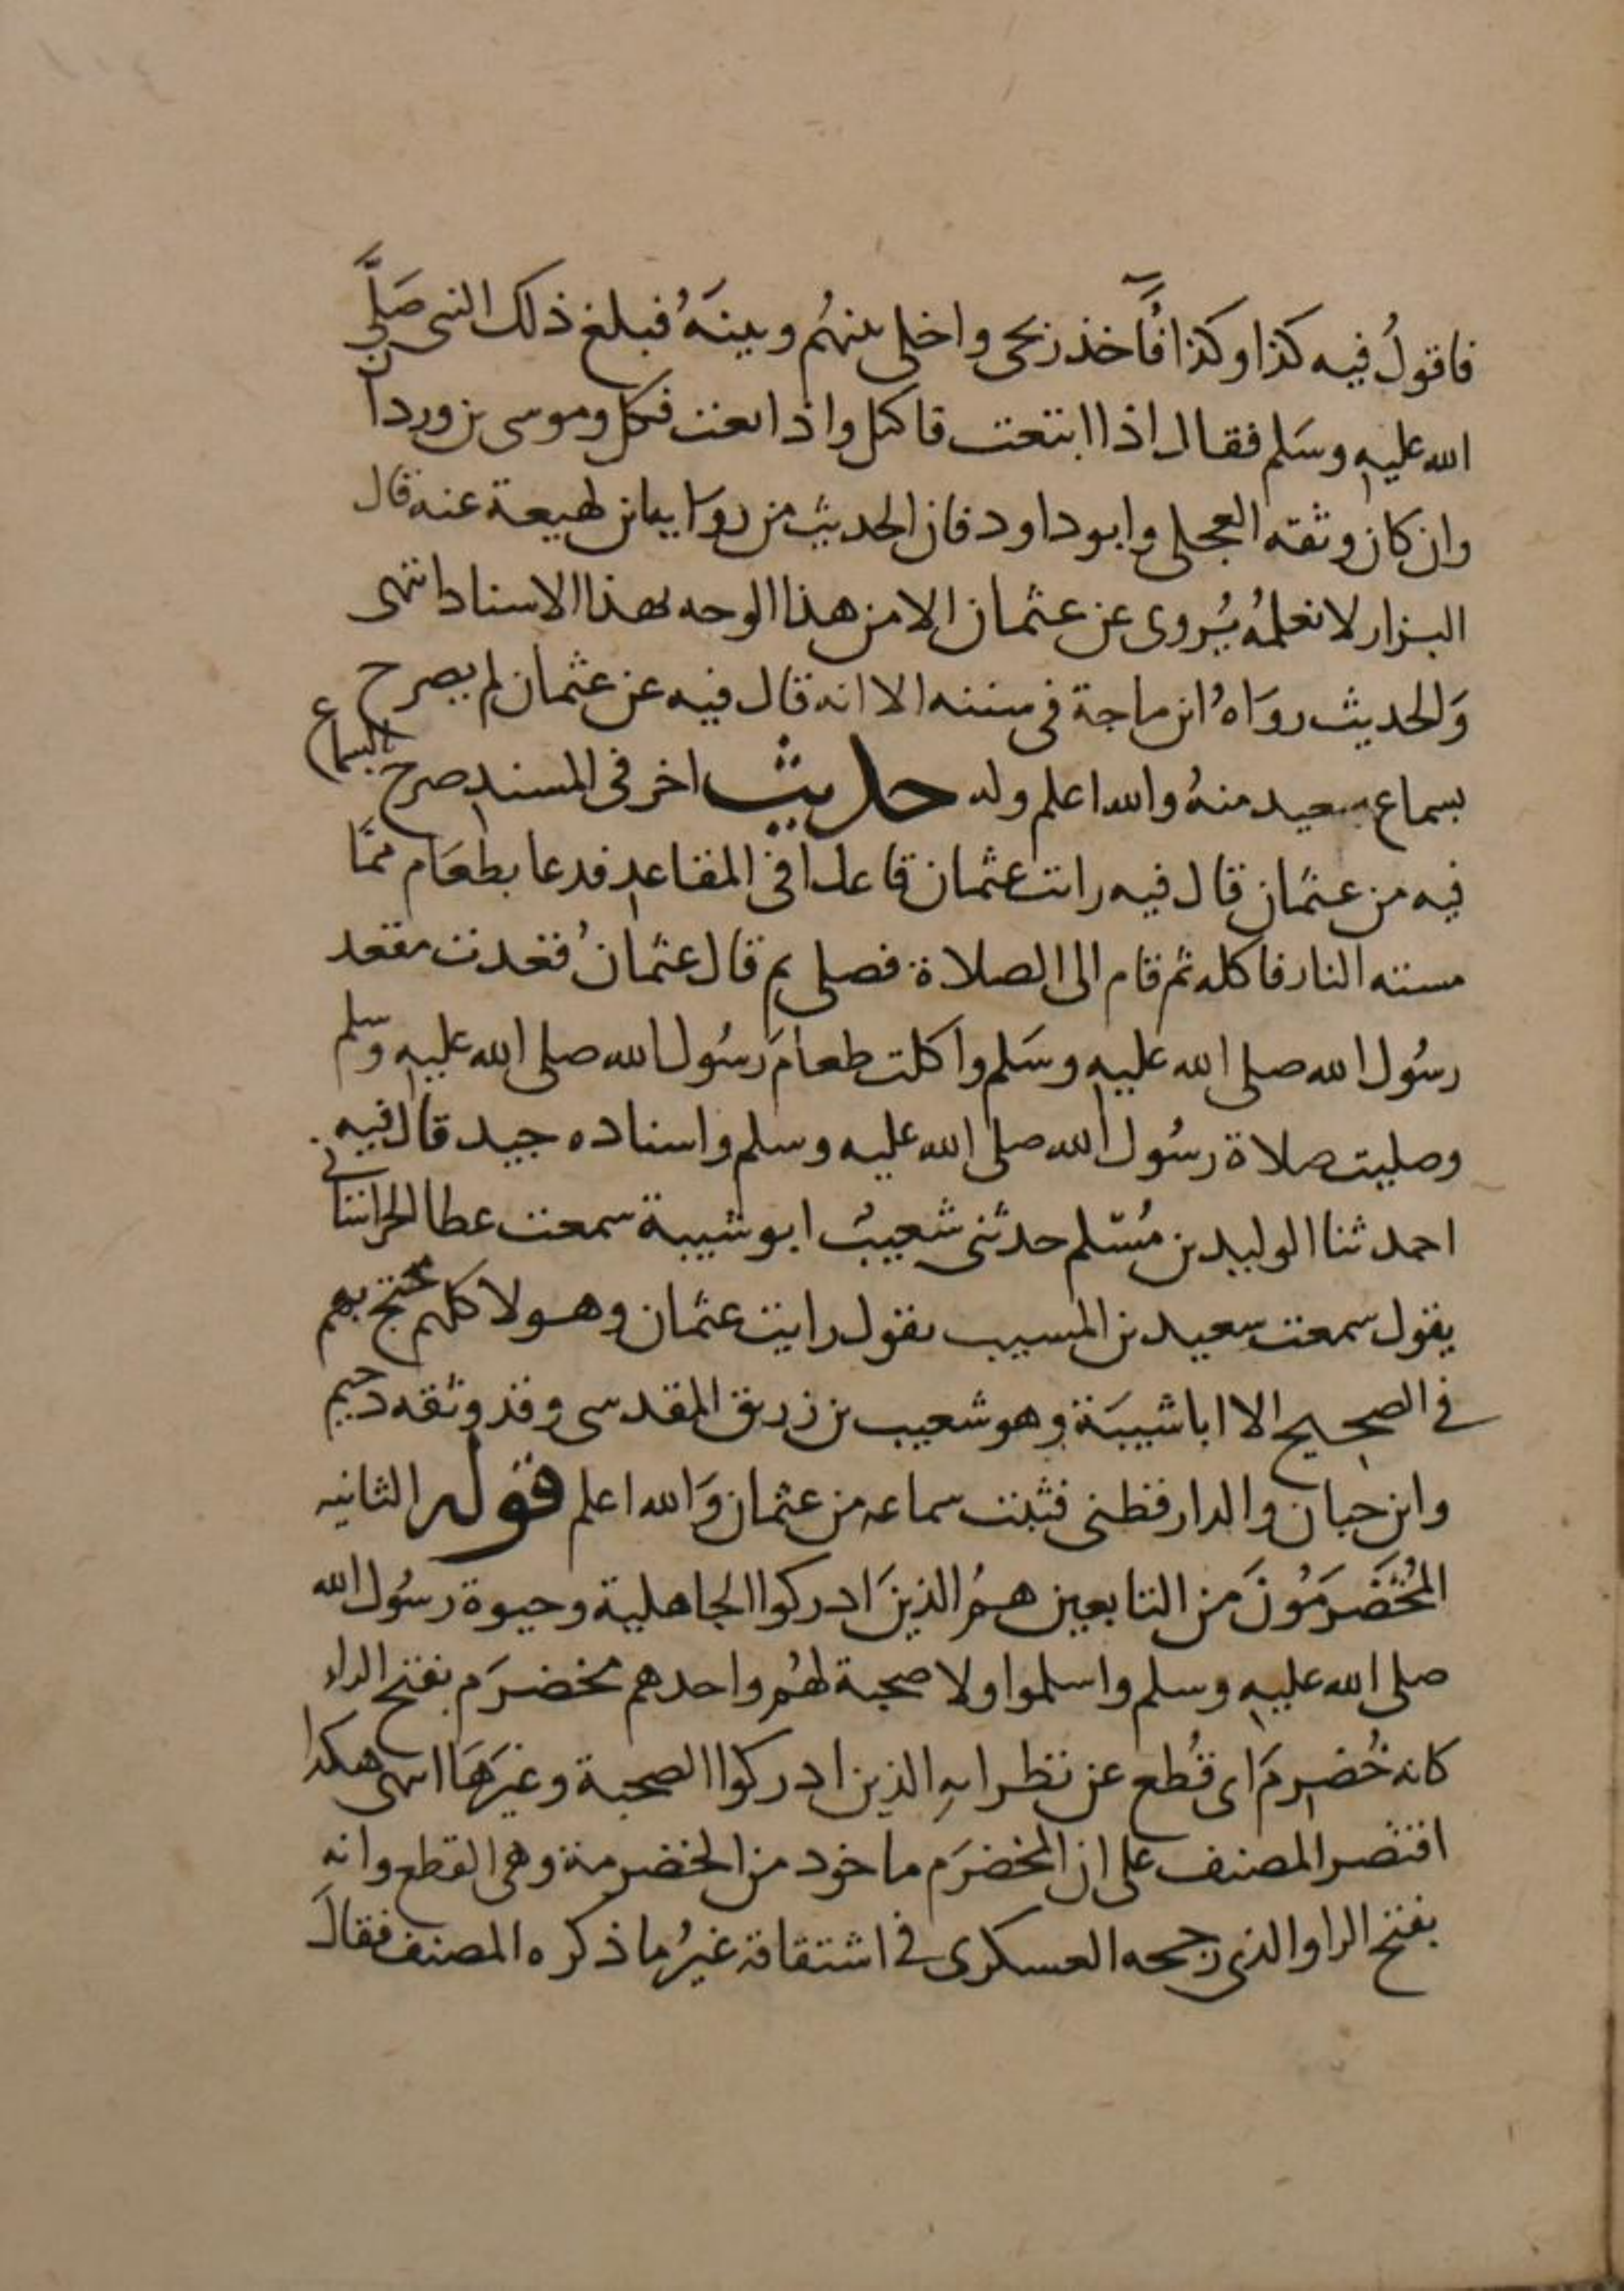 فاقولُ فيه كذا وكذا فآخذ ربحى واخلى بينهُم وبينَهُ فبلغ ذلك النبى صَلَّى
الله عليهِ وسَلم فقال اذا ابتعت فاكتل واذا بعت فكل وموسى بن وردان
وان كان وثقه العجلى وابو داود فان الحديث من رواية ابن لهيعة عنه قال
البزار لا نعلمُه يُروى عن عثمان الا من هذا الوجه بهذا الاسناد انتهى
وَالحديث روَاهُ ابن ماجة فى سننه الا انه قال فيه عن عثمان لم يصرح
بسماع سعيد منهُ والله اعلم وله حديث اخر فى المسند صرح بالسماع
فيه من عثمان قال فيه رايت عثمان قاعدا فى المقاعدِ فدعا بطعَام ممَّا
مسته النار فاكله ثم قام الى الصلاة فصلى ثم قال عثمانُ قعدت مقعد
رسُول الله صلى الله عليهِ وسَلم واكلت طعامَ رسُول الله صلى الله عليهِ وسلم
وصليت صلاة رسُول الله صلى الله عليه وسلم واسناده جيد قال فيه
احمد ثنا الوليد بن مُسْلم حدثنى شعيبُ ابو شيبة سمعت عطا الخراسانى
يقول سمعت سعيد بن المسيب يقول رايت عثمان وهولا كلهم محتج بهم
فى الصحيح الا ابا شيبَة وهو شعيب بن زريق المقدسى وقد وثقه دحيم
وابن حبان والدارقطنى فثبت سماعه من عثمان وَالله اعلم قوله الثانيه
المُخَضرَمُونَ من التابعين همُ الذينَ ادركوا الجاهلية وحيوة رسُول الله
صلى الله عليهِ وسلم واسلموا ولا صحبة لهُم واحدهم مخضرَم بفتح الراء
كانه خُضرِمَ اى قُطع عن نظرايهِ الذين ادركوا الصحبة وغيرَهَا انتهى هكذا
اقتصر المصنف على ان المخضرَم ماخود من الخضرمة وهى القطع وانه
بفتح الرا والذى رجحه العسكرى فى اشتقاقه غيرُ ما ذكره المصنف فقالَ